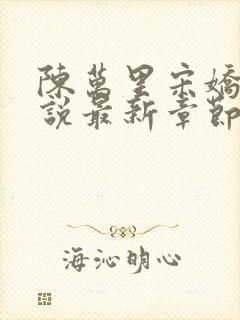 陳萬里宋嬌
說最新章節
海沁明心